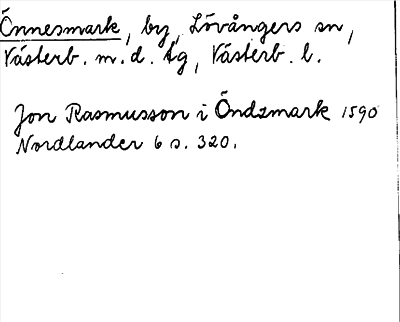 Önnesmark, by, Lövångers sn,
Västerb. m. d. tg, Västerb. l.
Jon Rasmusson i Öndzmark 1590
Nordlander 6 s. 320.